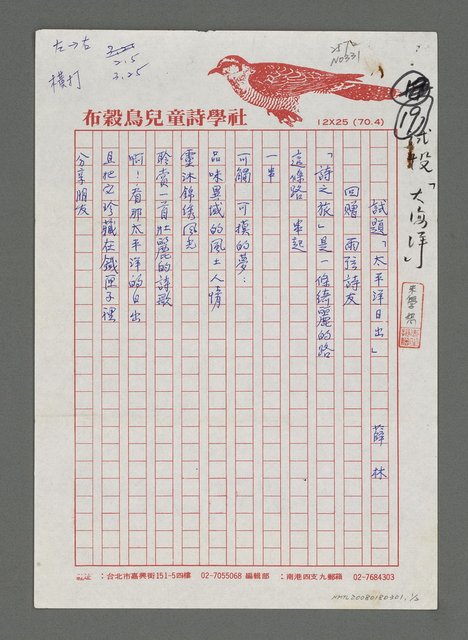 左→右
2.5
3.25
橫打
25/2
NO331
布穀鳥兒童詩學社
12X25 (70.4)
19
試投「大海洋」
朱學恕
試題「太平洋日出」
薛林
回贈 雨弦詩友
「詩之旅」是一條綺麗的路
這條路 串起
一串
可觸 可摸的夢…
品味異域的風土人情
靈沐錦綉風光
聆賞一首壯麗的詩歌
啊！看那太平洋的日出
且把它珍藏在鐵匣子裡
分享朋友
：台北市嘉興街151-5四樓 02-7055068 編輯部 ：南港四支九郵箱 02-7684303
NMTL20080180301, 1/2